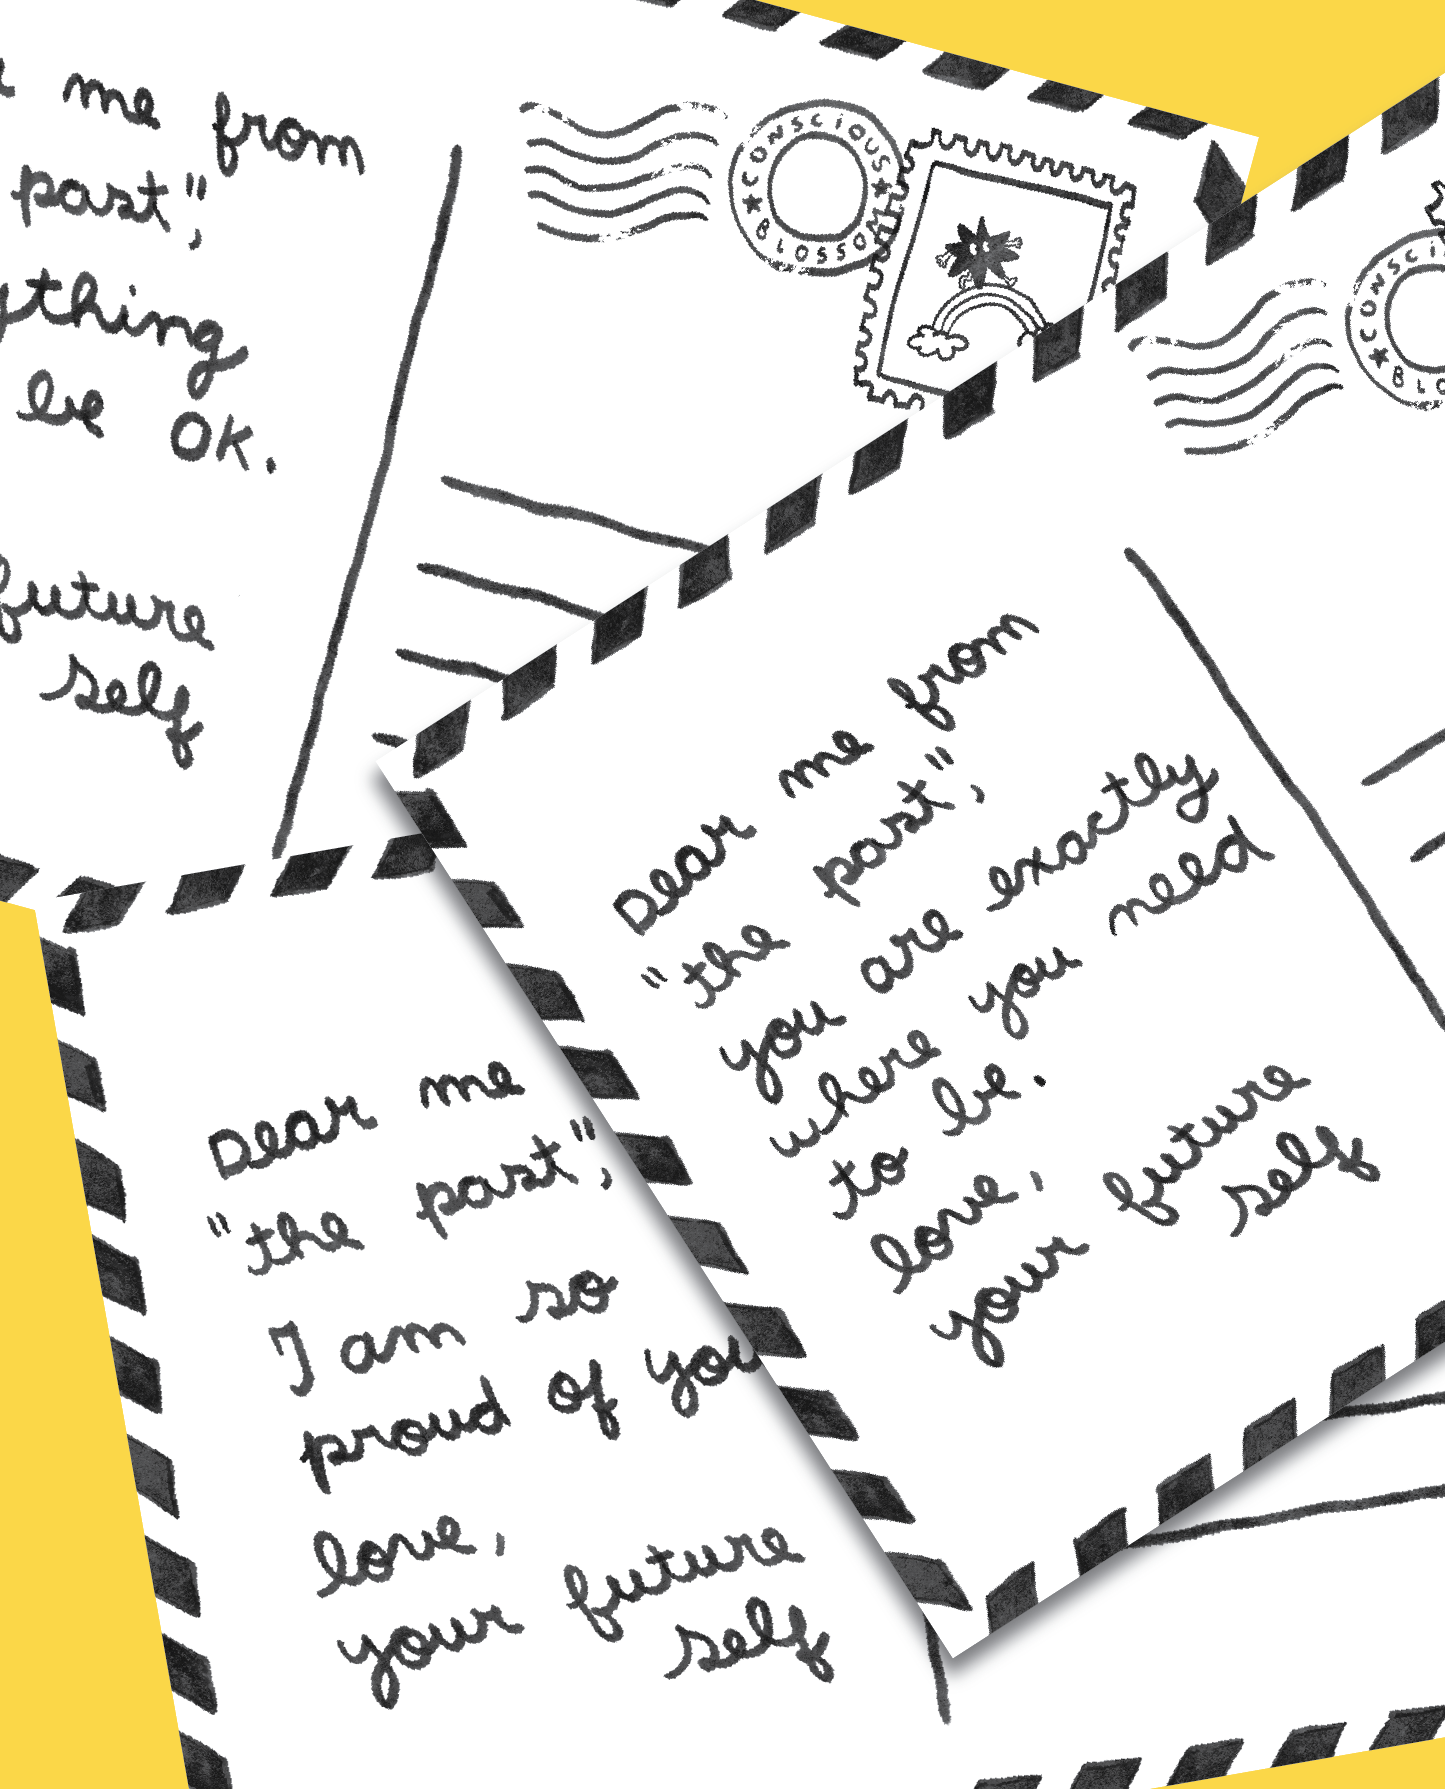 me from
past",
ything
be OK.
future
self
CONSCIOUS
BLOSSOM
CONSCI
BLO
Dear me from
"the past",
you are exactly
where you need
to be.
love,
your future
self
Dear me
"the past",
I am so
proud of you
love,
your future
self